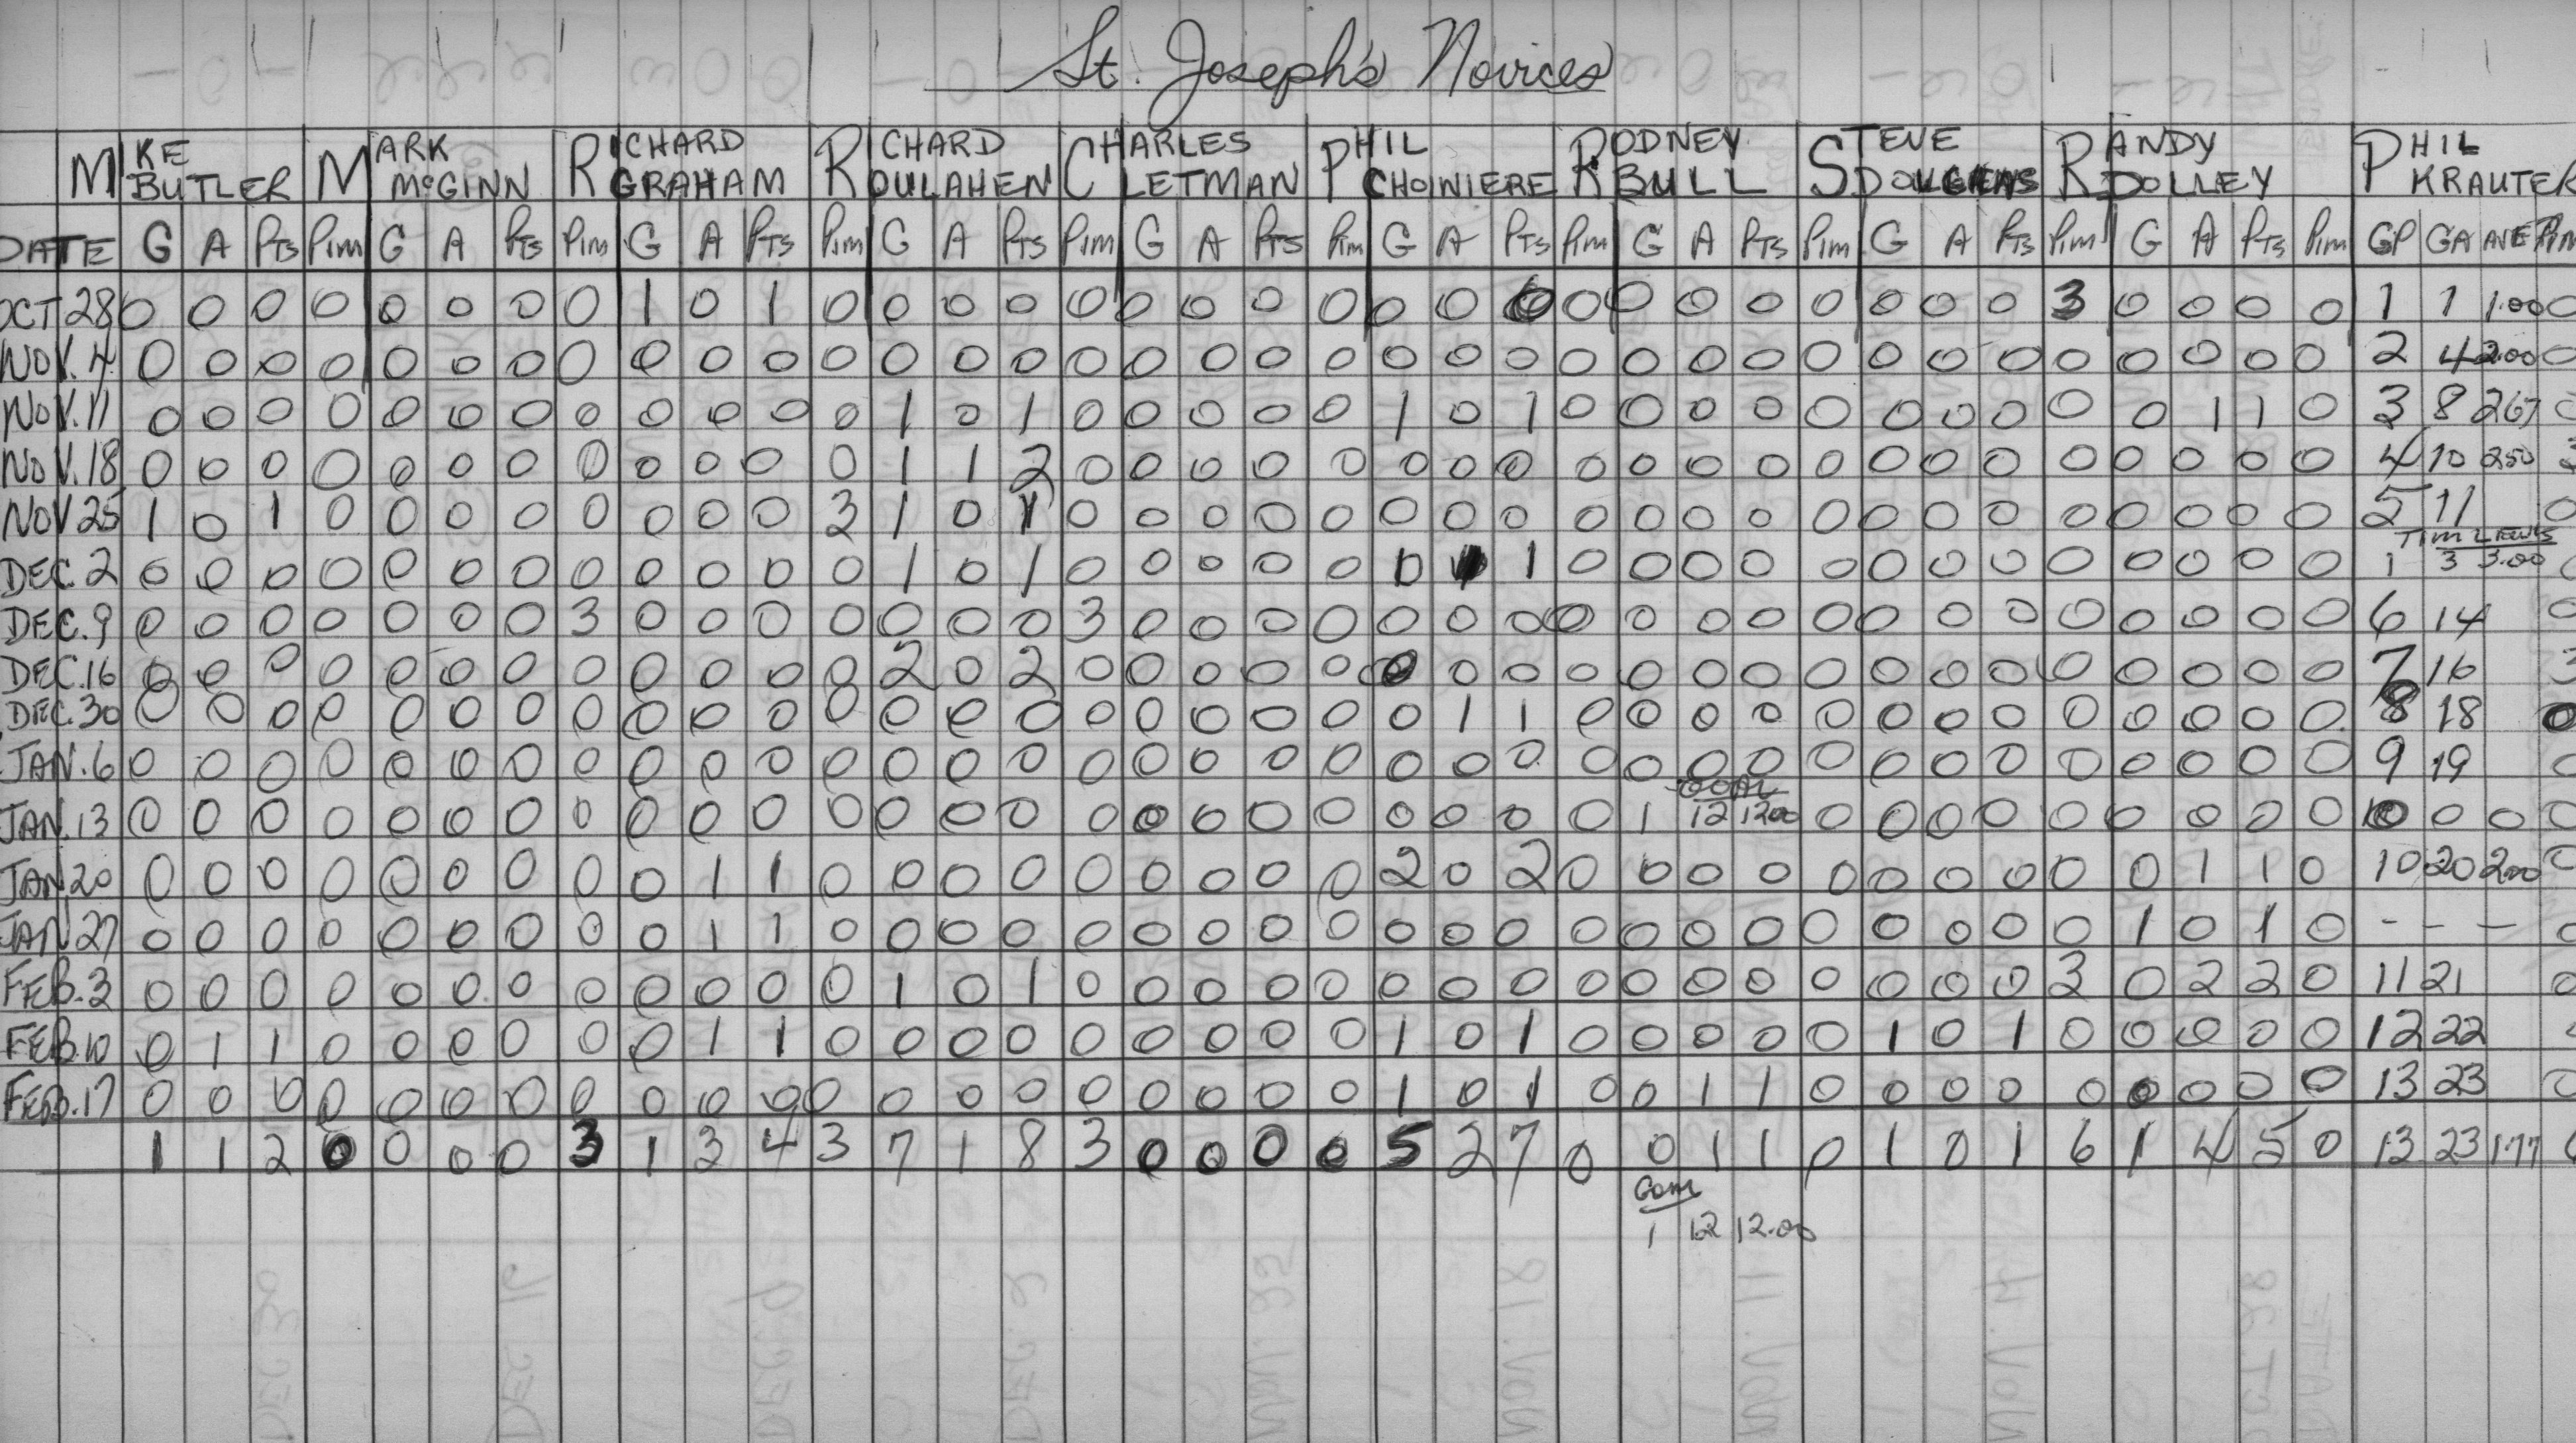 St. Joseph's Novices
MIKE BUTLER MARK McGINN RICHARD GRAHAM RICHARD OULAHEN CHARLES LETMAN PHIL CHOINIERE RODNEY BULL STEVE RANDY DOLLEY PHIL KRAUTER
DATE G A Pts Pim G A Pts Pim G A Pts Pim G A Pts Pim G A Pts Pim G A Pts Pim G A Pts Pim G A Pts Pim G A Pts Pim GP GA AVE Pim
OCT 28 0 0 0 0 0 0 0 0 1 0 1 0 0 0 0 0 0 0 0 0 0 0 0 0 0 0 0 0 0 0 0 3 0 0 0 0 1 1 1.00 0
NOV. 4 0 0 0 0 0 0 0 0 0 0 0 0 0 0 0 0 0 0 0 0 0 0 0 0 0 0 0 0 0 0 0 0 0 0 0 0 2 4 2.00 0
NOV. 11 0 0 0 0 0 0 0 0 0 0 0 0 1 0 1 0 0 0 0 0 1 0 1 0 0 0 0 0 0 0 0 0 0 1 1 0 3 8 267 0
NOV. 18 0 0 0 0 0 0 0 0 0 0 0 0 1 1 2 0 0 0 0 0 0 0 0 0 0 0 0 0 0 0 0 0 0 0 0 0 4 10 250 3
NOV 25 1 0 1 0 0 0 0 0 0 0 0 3 1 0 1 0 0 0 0 0 0 0 0 0 0 0 0 0 0 0 0 0 0 0 0 0 5 11 0
Tim
DEC. 2 0 0 0 0 0 0 0 0 0 0 0 0 1 0 1 0 0 0 0 0 0 1 1 0 0 0 0 0 0 0 0 0 0 0 0 0 1 3 3.00 0
DEC. 9 0 0 0 0 0 0 0 3 0 0 0 0 0 0 0 3 0 0 0 0 0 0 0 0 0 0 0 0 0 0 0 0 0 0 0 0 6 14 0
DEC. 16 0 0 0 0 0 0 0 0 0 0 0 0 2 0 2 0 0 0 0 0 0 0 0 0 0 0 0 0 0 0 0 0 0 0 0 0 7 16 3
DEC. 30 0 0 0 0 0 0 0 0 0 0 0 0 0 0 0 0 0 0 0 0 0 1 1 0 0 0 0 0 0 0 0 0 0 0 0 0 8 18 0
JAN. 6 0 0 0 0 0 0 0 0 0 0 0 0 0 0 0 0 0 0 0 0 0 0 0 0 0 0 0 0 0 0 0 0 0 0 0 0 9 19 0
GOAL
JAN. 13 0 0 0 0 0 0 0 0 0 0 0 0 0 0 0 0 0 0 0 0 0 0 0 0 1 12 1200 0 0 0 0 0 0 0 0 0 0 0 0
JAN 20 0 0 0 0 0 0 0 0 0 1 1 0 0 0 0 0 0 0 0 0 2 0 2 0 0 0 0 0 0 0 0 0 0 1 1 0 10 20 2.00 0
JAN 27 0 0 0 0 0 0 0 0 0 1 1 0 0 0 0 0 0 0 0 0 0 0 0 0 0 0 0 0 0 0 0 0 1 0 1 0 - - - 0
FEB. 3 0 0 0 0 0 0 0 0 0 0 0 0 1 0 1 0 0 0 0 0 0 0 0 0 0 0 0 0 0 0 0 3 0 2 2 0 11 21 0
FEB. 10 0 1 1 0 0 0 0 0 0 1 1 0 0 0 0 0 0 0 0 0 1 0 1 0 0 0 0 0 1 0 1 0 0 0 0 0 12 22
FEB. 17 0 0 0 0 0 0 0 0 0 0 0 0 0 0 0 0 0 0 0 0 1 0 1 0 0 1 1 0 0 0 0 0 0 0 0 0 13 23 0
1 1 2 0 0 0 0 3 1 3 4 3 7 1 8 3 0 0 0 0 5 2 7 0 0 1 1 0 1 0 1 6 1 4 5 0 13 23 1.77
1 12 12.00